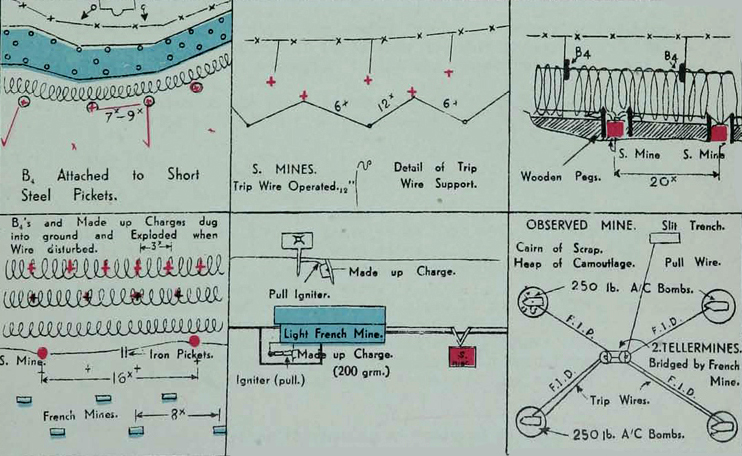 7ˣ-9ˣ
B₄ Attached to Short
Steel Pickets.
6ˣ
12ˣ
6ˣ
S. MINES.
Trip Wire Operated.
12"
Detail of Trip
Wire Support.
B4
B4
S. Mine
S. Mine
Wooden Pegs.
20ˣ
B₄'s and Made up Charges dug
into ground and Exploded when
Wire disturbed.
3ˣ
S. Mine
Iron Pickets.
16ˣ
French Mines.
8ˣ
Made up Charge.
Pull Igniter.
Light French Mine.
Made up Charge.
(200 grm.)
Igniter (pull.)
S.
OBSERVED MINE.
Slit Trench.
Cairn of Scrap.
Heap of Camouflage.
Pull Wire.
250 lb. A/C Bombs.
F.I.P.
F.I.D.
2.TELLERMINES.
Bridged by French
Mine.
F.I.D.
F.I.D.
Trip Wires.
250 lb. A/C Bombs.